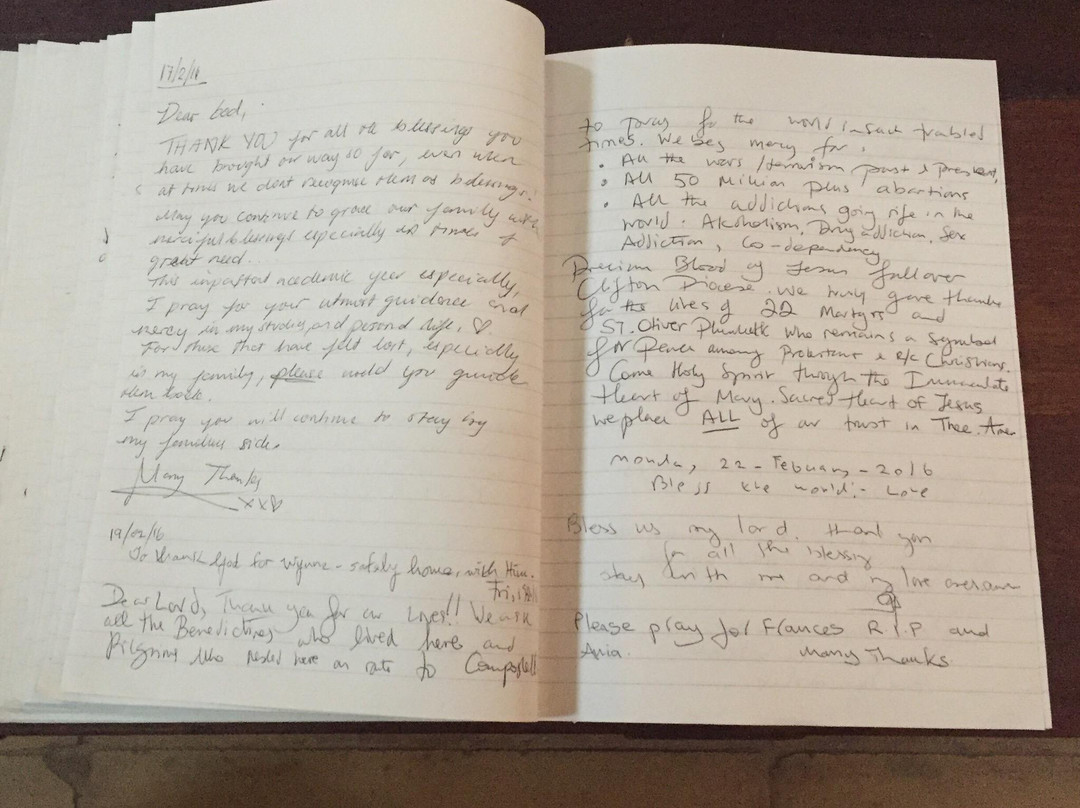 17/2/16
Dear God,
THANK YOU for all the blessings you
have brought our way so far, even when
at times we dont recognise them as blessings!
May you continue to grace our family with
merciful blessings especially in times of
great need...
This important academic year especially,
I pray for your utmost guidance and
mercy in my studies, and personal life. ♡
For those that have felt lost, especially
in my family, please would you guide
them back.
I pray you will continue to stay by
my families side.
Many Thanks
xx♡
19/02/16
To thank God for Wynne - safely home, with Him.
Fri,
Dear Lord, Thank you for our lives!! We ask
all the Benedictines who lived here and
Pilgrims who rested here on route to Compostella
to pray for the world in such troubled
times. We beg mercy for:
• All the wars / terrorism past & present,
• All 50 Million plus abortions
• All the addictions going rife in the
world. Alcoholism, Drug addiction, Sex
Addiction, Co-dependency
Precious Blood of Jesus fall over
Clifton Diocese. We truly gave thanks
for the lives of 22 Martyrs and
ST. Oliver Plunkett who remains a symbol
for Peace among Protestant & R/C Christians.
Come Holy Spirit through the Immaculate
Heart of Mary. Sacred Heart of Jesus
we place ALL of our trust in Thee. Amen
Monday, 22 - February - 2016
Bless the world! - Love
Bless us my lord. thank you
for all the blessing
stay with me and my love
Please pray for Frances R.I.P and
Ania. Many Thanks